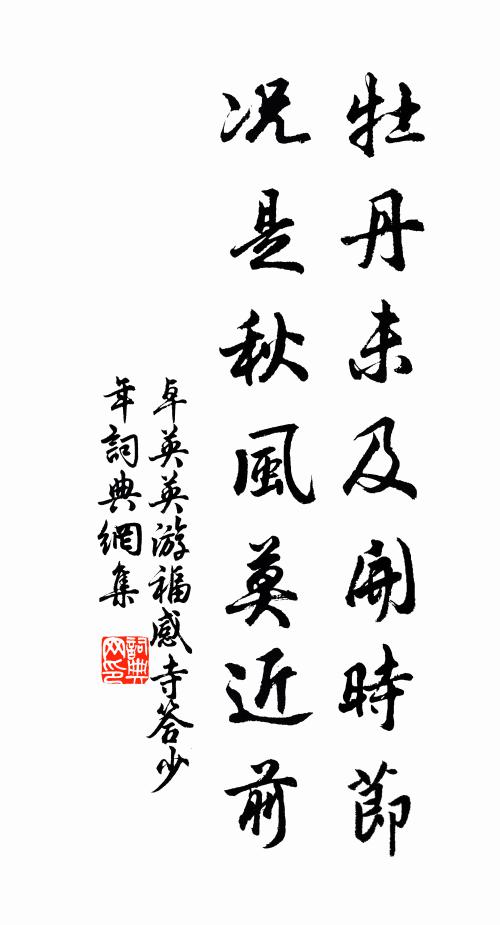 牡丹未及開時節
况是秋風莫近前
卓英英游福感寺答少
年詞典網集
詞典
网印